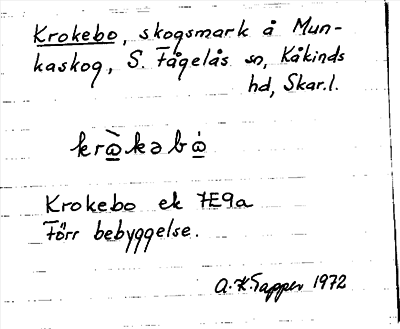 Krokebo, skogsmark å Mun-
kaskog, S. Fågelås sn, Kåkinds
hd, Skar.l.
krὼ̲kəbω̲̇
Krokebo ek 7E9a
Förr bebyggelse.
A.K. Tapper 1972